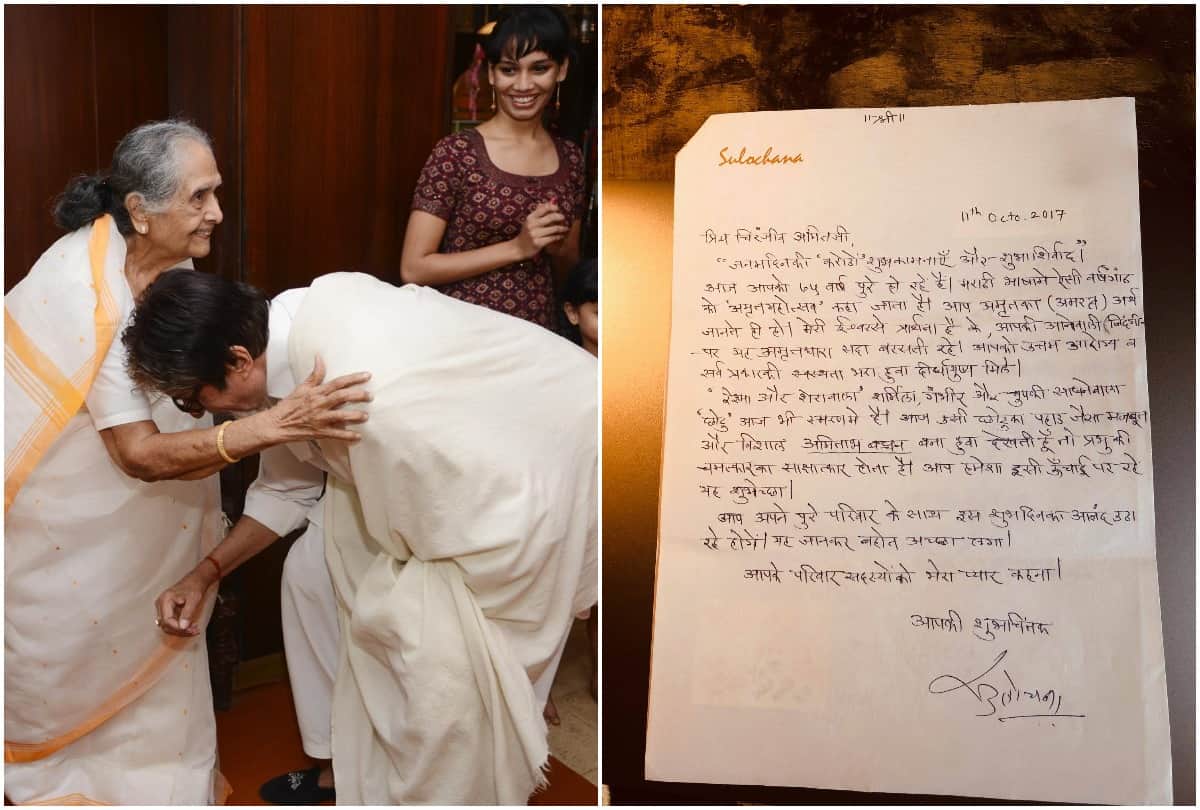 ॥श्री॥
Sulochana
11th Octo. 2017
प्रिय चिरंजीव अमितजी,
"जनमदिनकी 'करोडो' शुभकामनाएँ और शुभाशिर्वाद।"
आज आपको ७५ वर्ष पुरे हो रहे है। मराठी भाषामे ऐसी वर्षगांठ
को 'अमृतमहोत्सव' कहा जाता है। आप अमृतका (अमरत्व) अर्थ
जानते ही हो। मेरी ईश्वरसे प्रार्थना है के, आपकी आनेवाली जिंदगी-
पर यह अमृतधारा सदा बरसती रहे। आपको उत्तम आरोग्य व
सर्व प्रकारकी स्वस्थता भरा हुवा दीर्घायुष्य मिले।
'रेश्मा और शेरावाला' शर्मिला, गंभीर और चुपकी
'छोटु' आज भी स्मरणमे है। आज उसी छोटुका पहाड जैसा मजबूत
और विशाल अमिताभ बच्चन बना हुवा देखती हूँ तो प्रभु की
चमत्कारका साक्षात्कार होता है। आप हमेशा इसी ऊँचाई पर रहे
यह शुभेच्छा।
आप अपने पुरे परिवार के साथ इस शुभदिनका आनंद उठा
रहे होगें। यह जानकर बहोत अच्छा लगा।
आपके परिवार सदस्योंको मेरा प्यार कहना।
आपकी शुभचिंतक
सुलोचना